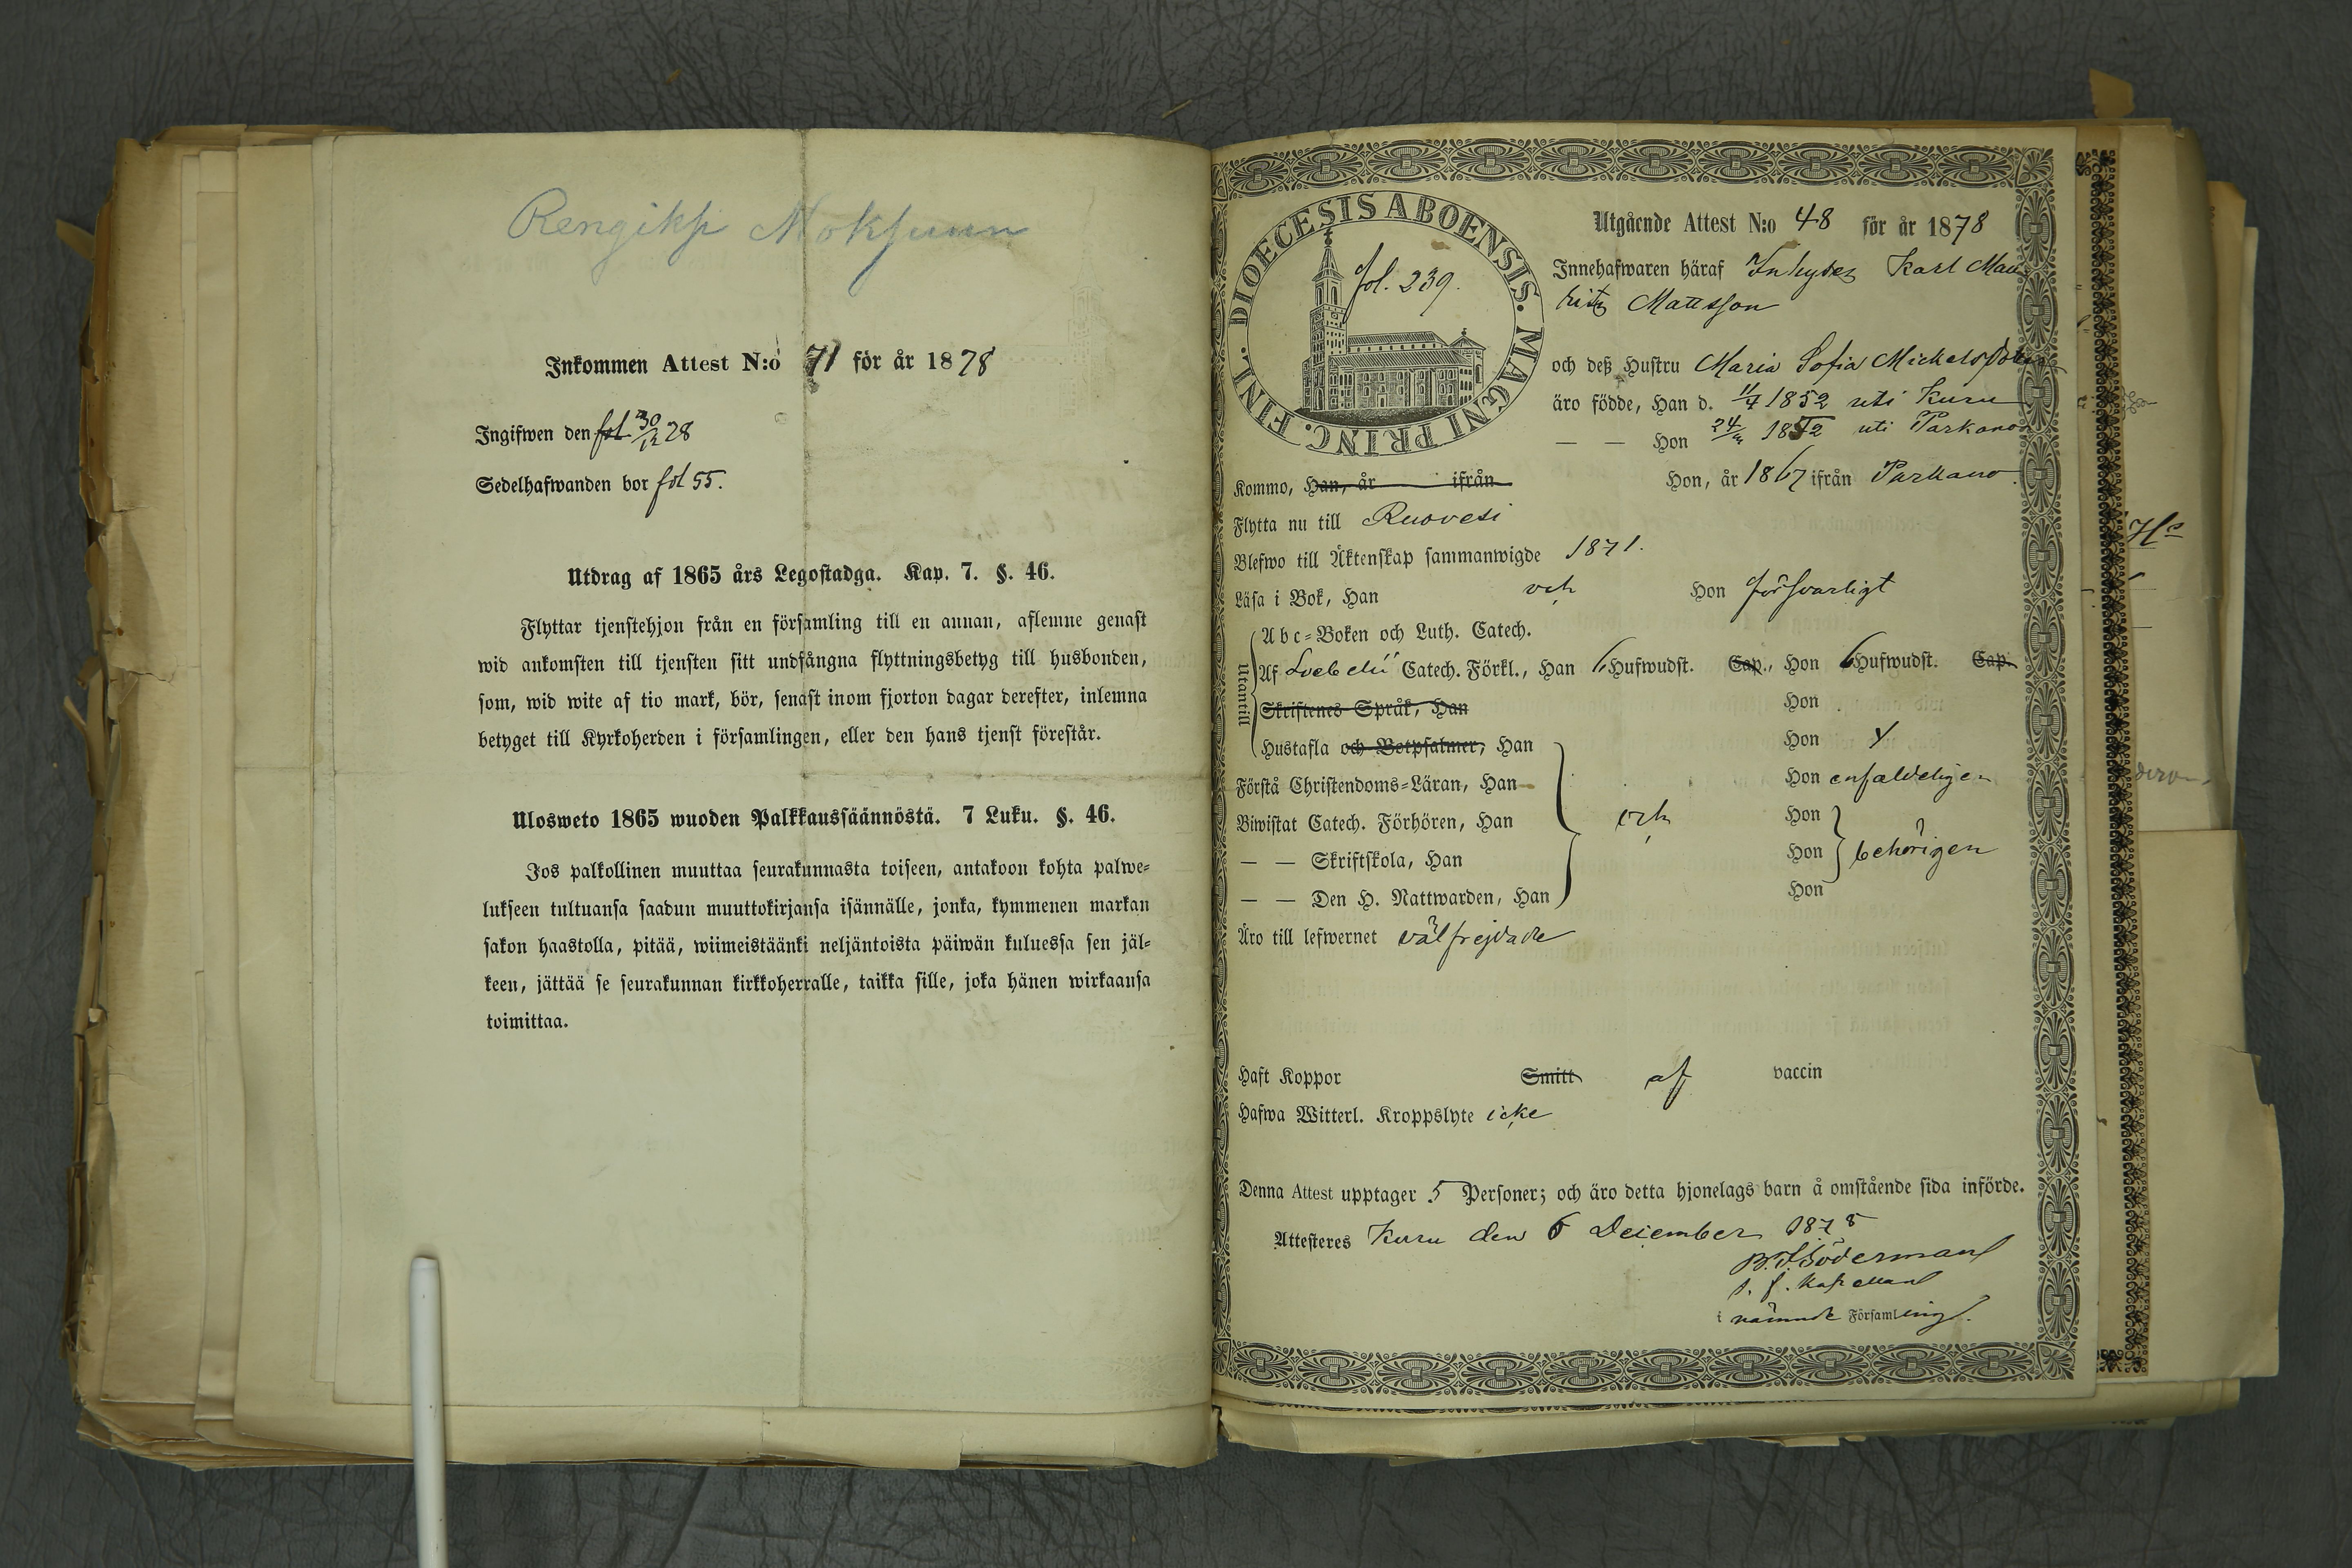 Rengiksi Moksunn
Inkommen Attest N:o 71 för år 1878
Ingifwen den fol 30/12 28
Sedelhafwanden bor fol 55.
Utdrag af 1865 års Legostadga. Kap. 7. §. 46.
Flyttar tjenstehjon från en församling till en annan, aflemne genast
wid ankomsten till tjensten sitt undfångna flyttningsbetyg till husbonden,
som, wid wite af tio mark, bör, senast inom fjorton dagar derefter, inlemna
betyget till Kyrkoherden i församlingen, eller den hans tjenst förestår.
Ulosweto 1865 wuoden Palkkaussäännöstä. 7 Luku. §. 46.
Jos palkollinen muuttaa seurakunnasta toiseen, antakoon kohta palwe-
lukseen tultuansa saadun muuttokirjansa isännälle, jonka, kymmenen markan
sakon haastolla, pitää, wiimeistäänki neljäntoista päiwän kuluessa sen jäl-
keen, jättää se seurakunnan kirkkoherralle, taikka sille, joka hänen wirkaansa
toimittaa.
DIOECESIS ABOENSIS. MAGNI PRINC. FINL.
fol. 239.
Utgående Attest N:o 48 för år 1878
Innehafwaren häraf Inhyses Karl Mau
ritz Mattsson
och deß Hustru Maria Sofia Mickelsdoter
äro födde, Han d. 11/4 1852 uti Kuru
— — Hon 24/ 1852 uti Parkano
Kommo, Han, år ifrån Hon, år 1867 ifrån Parkano.
Flytta nu till Ruovesi
Blefwo till Äktenskap sammanwigde 1871.
Läsa i Bok, Han och Hon försvarligt
Utantill
Abc-Boken och Luth. Catech.
Af Svebelii Catech. Förkl., Han 6 Hufwudst. Cap., Hon 6 Hufwudst. Cap.
Skriftenes Språk, Han Hon
Hustafla och Botpsalmer, Han Hon
Förstå Christendoms-Läran, Han Hon enfaldeligen
Biwistat Catech. Förhören, Han och Hon
— — Skriftskola, Han Hon behörigen
— — Den H. Nattwarden, Han Hon
Äro till lefwernet välfrejdade
Haft Koppor Smitt af vaccin
Hafwa Witterl. Kroppslyte icke
Denna Attest upptager 5 Personer; och äro detta hjonelags barn å omstående sida införde.
Attesteres Kuru den 6 December 1878
Södermanl
t. f. Kapellanl
i nämnde Församling.